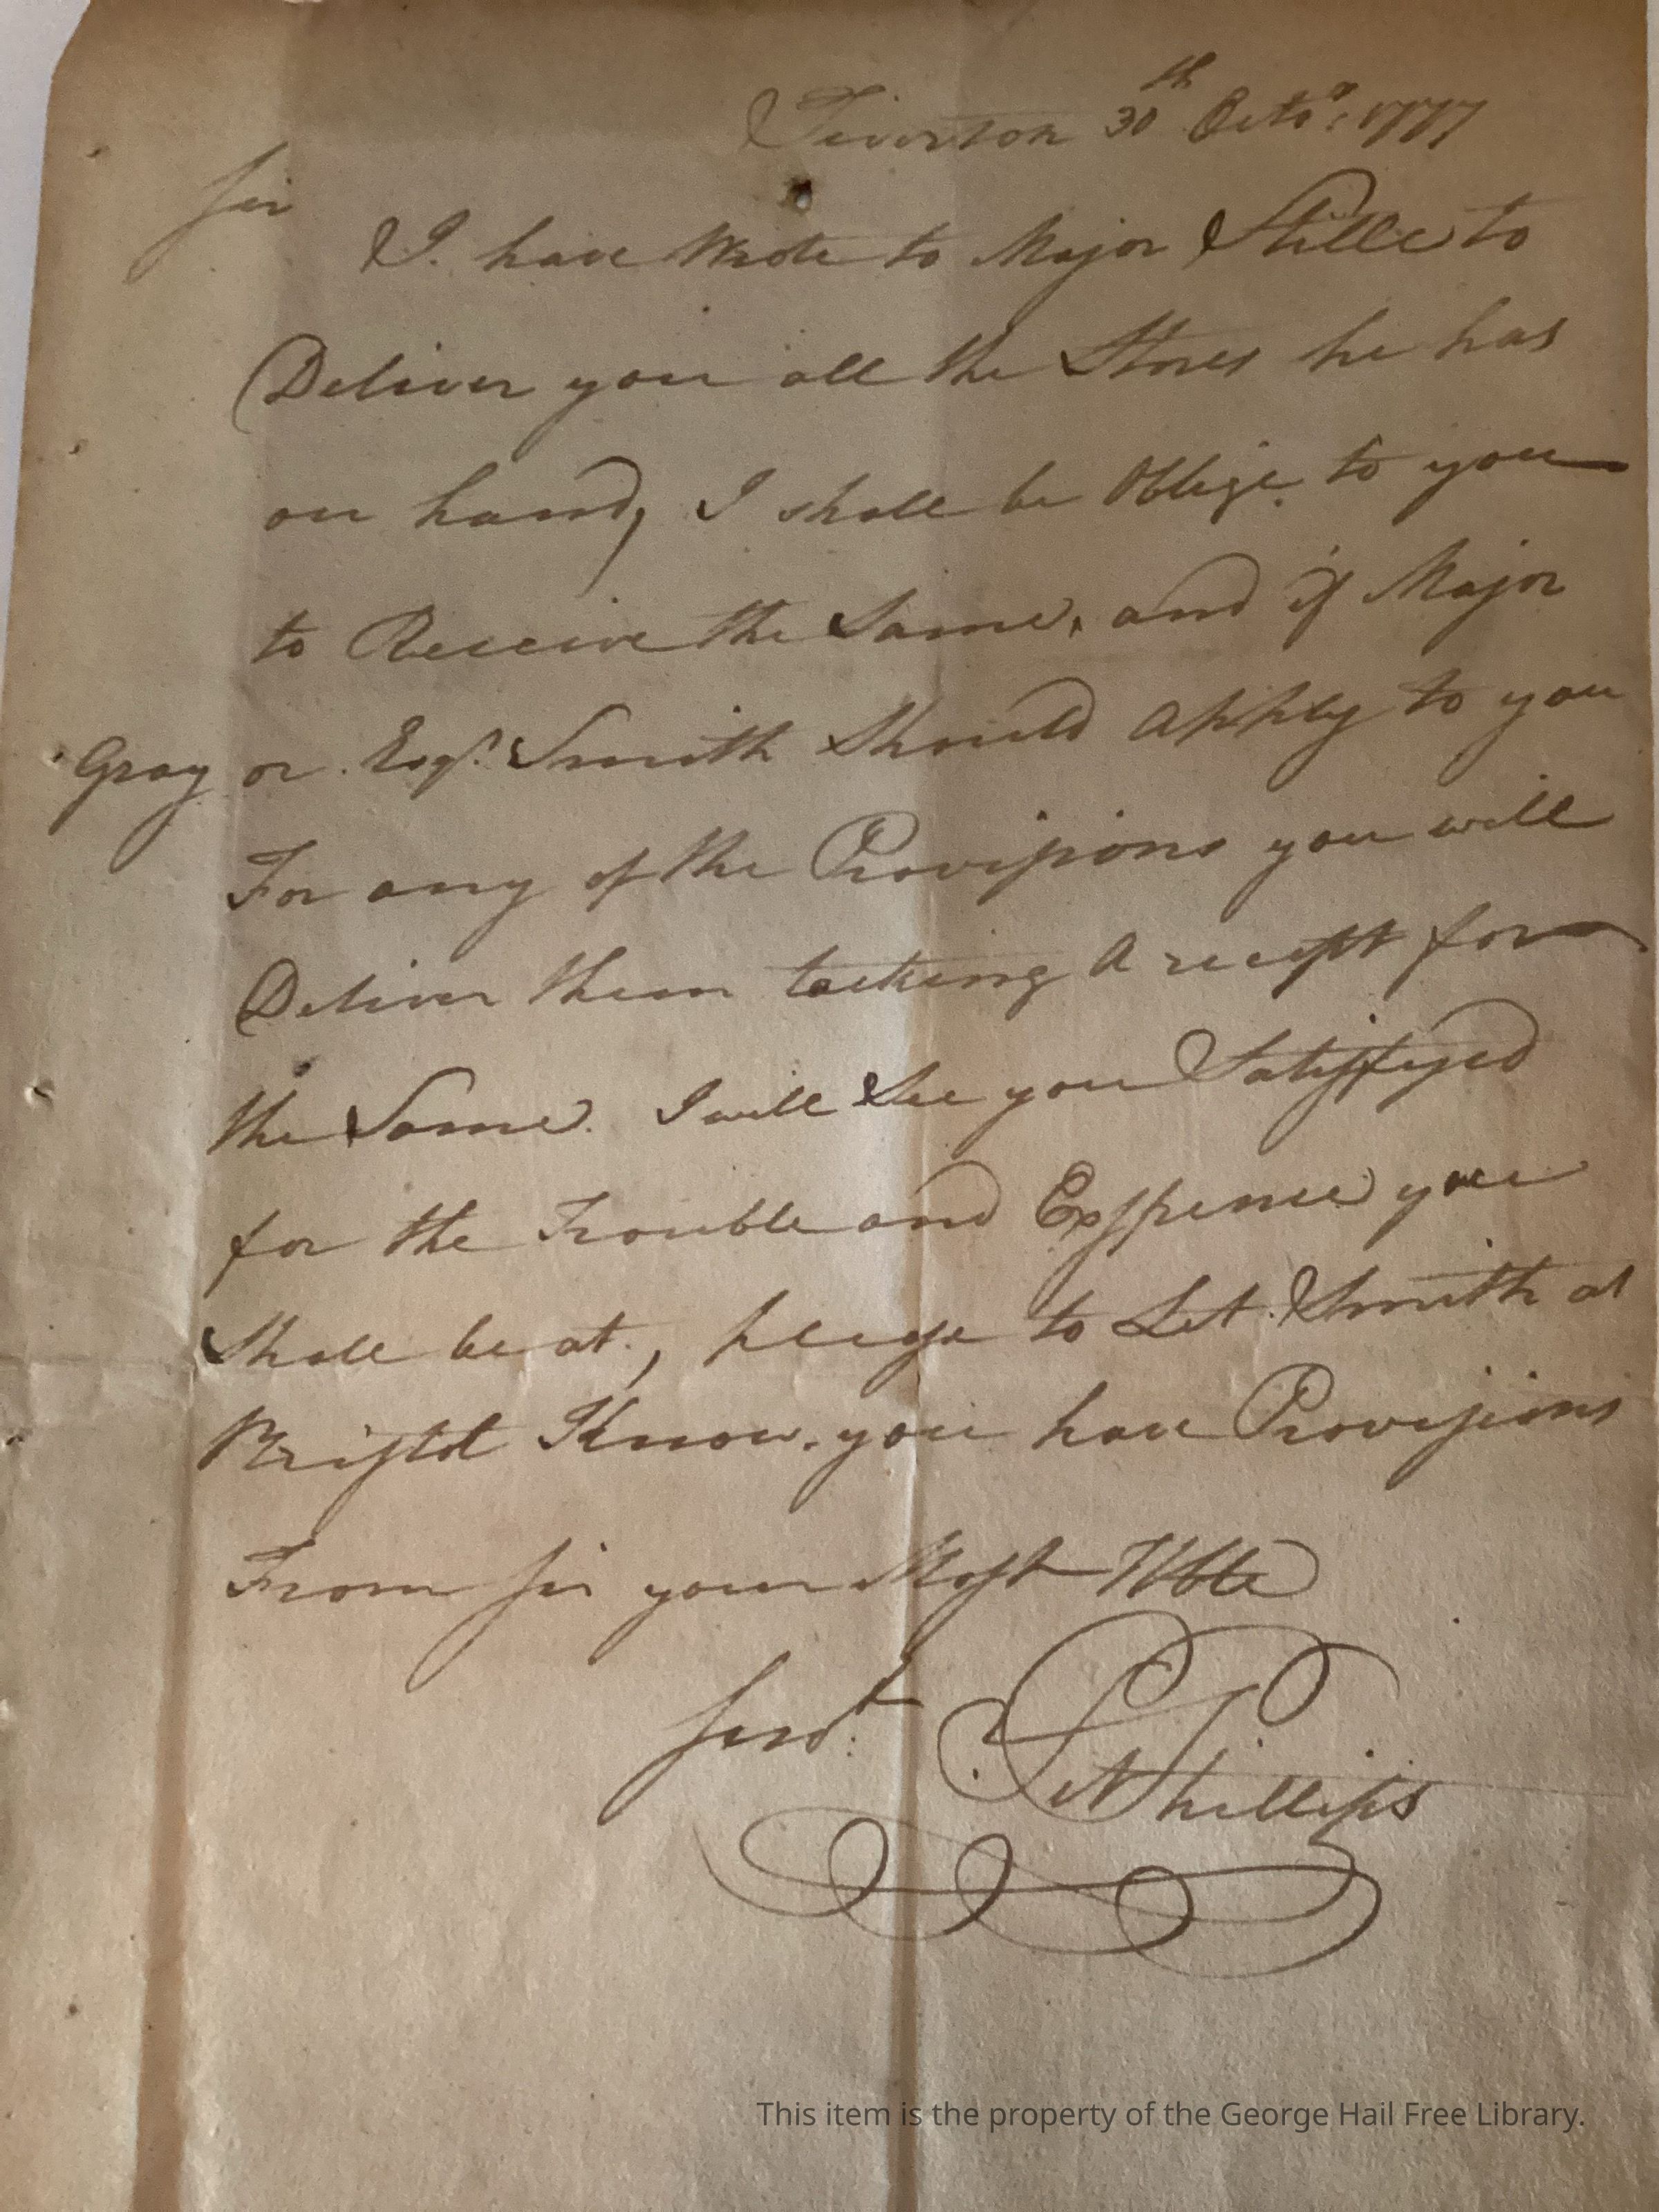 Tiverton 30th Octor: 1777
Sir
I. have Wrote to Major Stille to
Deliver you all the Stores he has
on hand, I shall be Oblige to you
to Receive the Same, and if Major
Gray or Esqr. Smith Should Apply to you
For any of the Provisions you will
Deliver them tacking A recept for
the Same. I will See you Satisfyed
for the Trouble and Exspence you
Shall be at, please to Let Smith at
Bristol Know you have Provisions
From Sir your Most Hble
Servt.
Phillips
This item is the property of the George Hail Free Library.